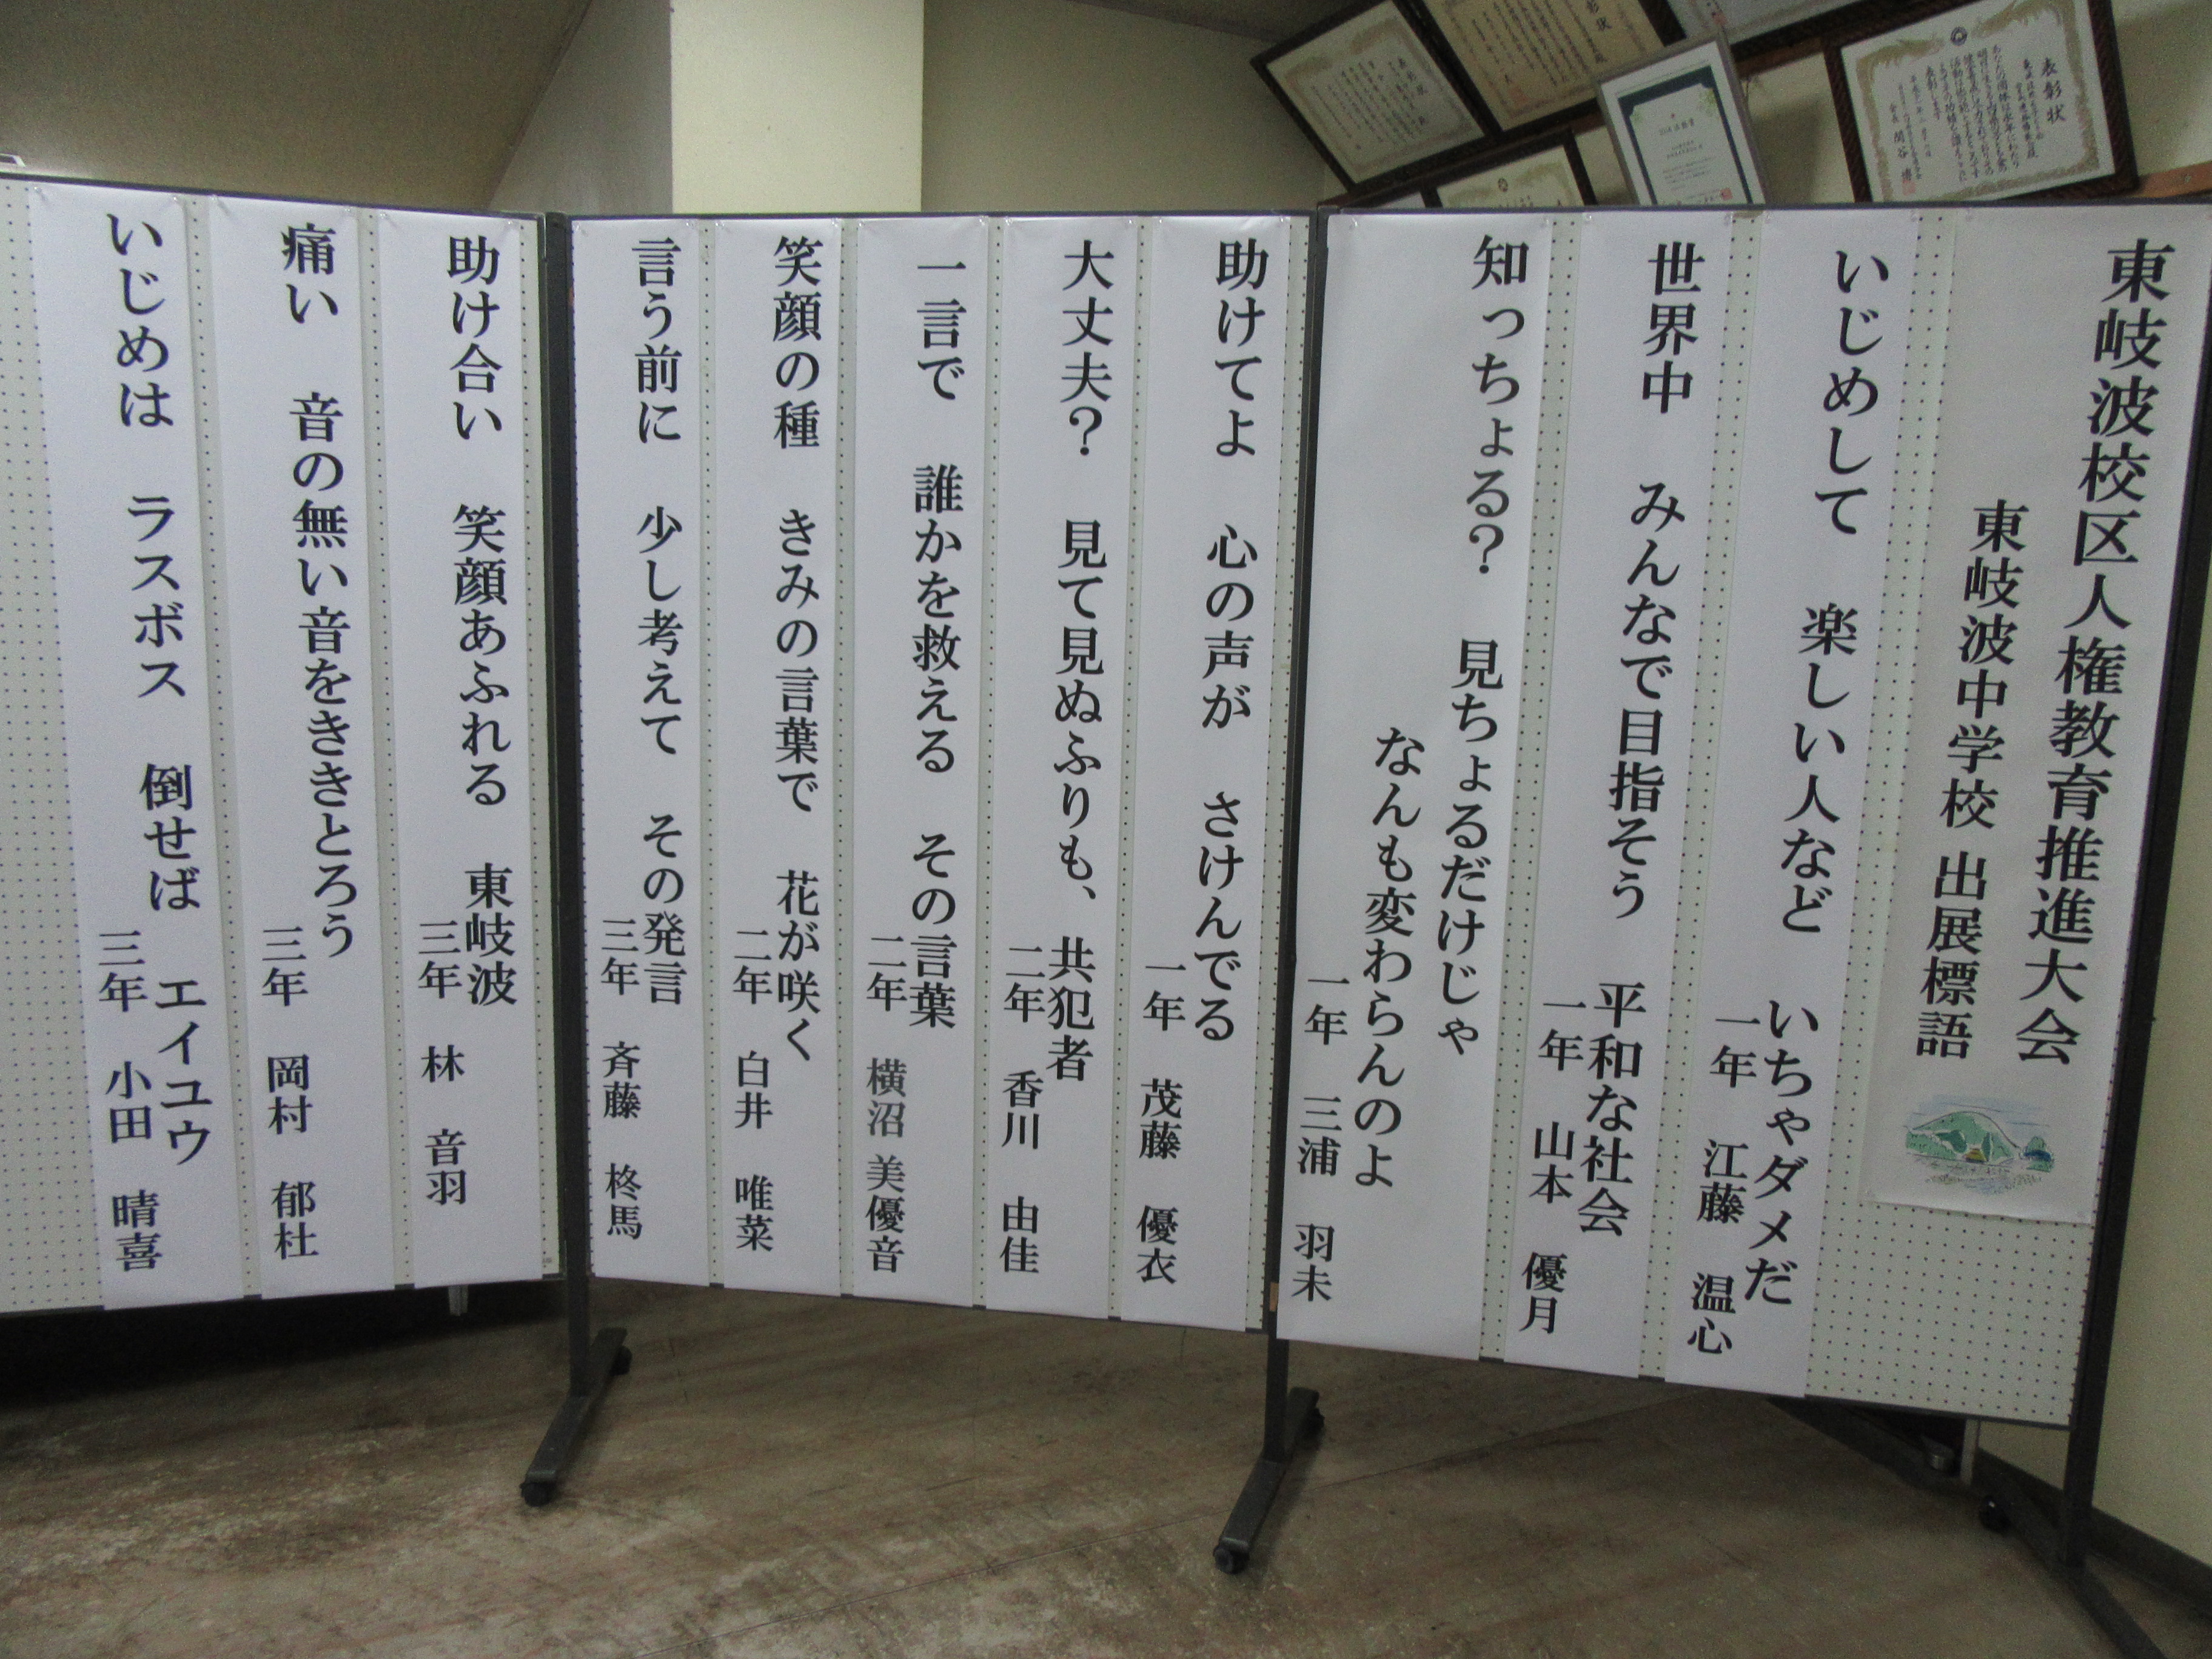 東岐波校区人権教育推進大会
東岐波中学校 出展標語
いじめして 楽しい人など いちゃダメだ
一年 江藤 温心
世界中 みんなで目指そう 平和な社会
一年 山本 優月
知っちょる? 見ちょるだけじゃ
なんも変わらんのよ
一年 三浦 羽未
助けてよ 心の声が さけんでる
一年 茂藤 優衣
大丈夫? 見て見ぬふりも、共犯者
二年 香川 由佳
一言で 誰かを救える その言葉
二年 横沼 美優音
笑顔の種 きみの言葉で 花が咲く
二年 白井 唯菜
言う前に 少し考えて その発言
三年 斉藤 柊馬
助け合い 笑顔あふれる 東岐波
三年 林 音羽
痛い 音の無い音をききとろう
三年 岡村 郁杜
いじめは ラスボス 倒せば エイユウ
三年 小田 晴喜
表彰状